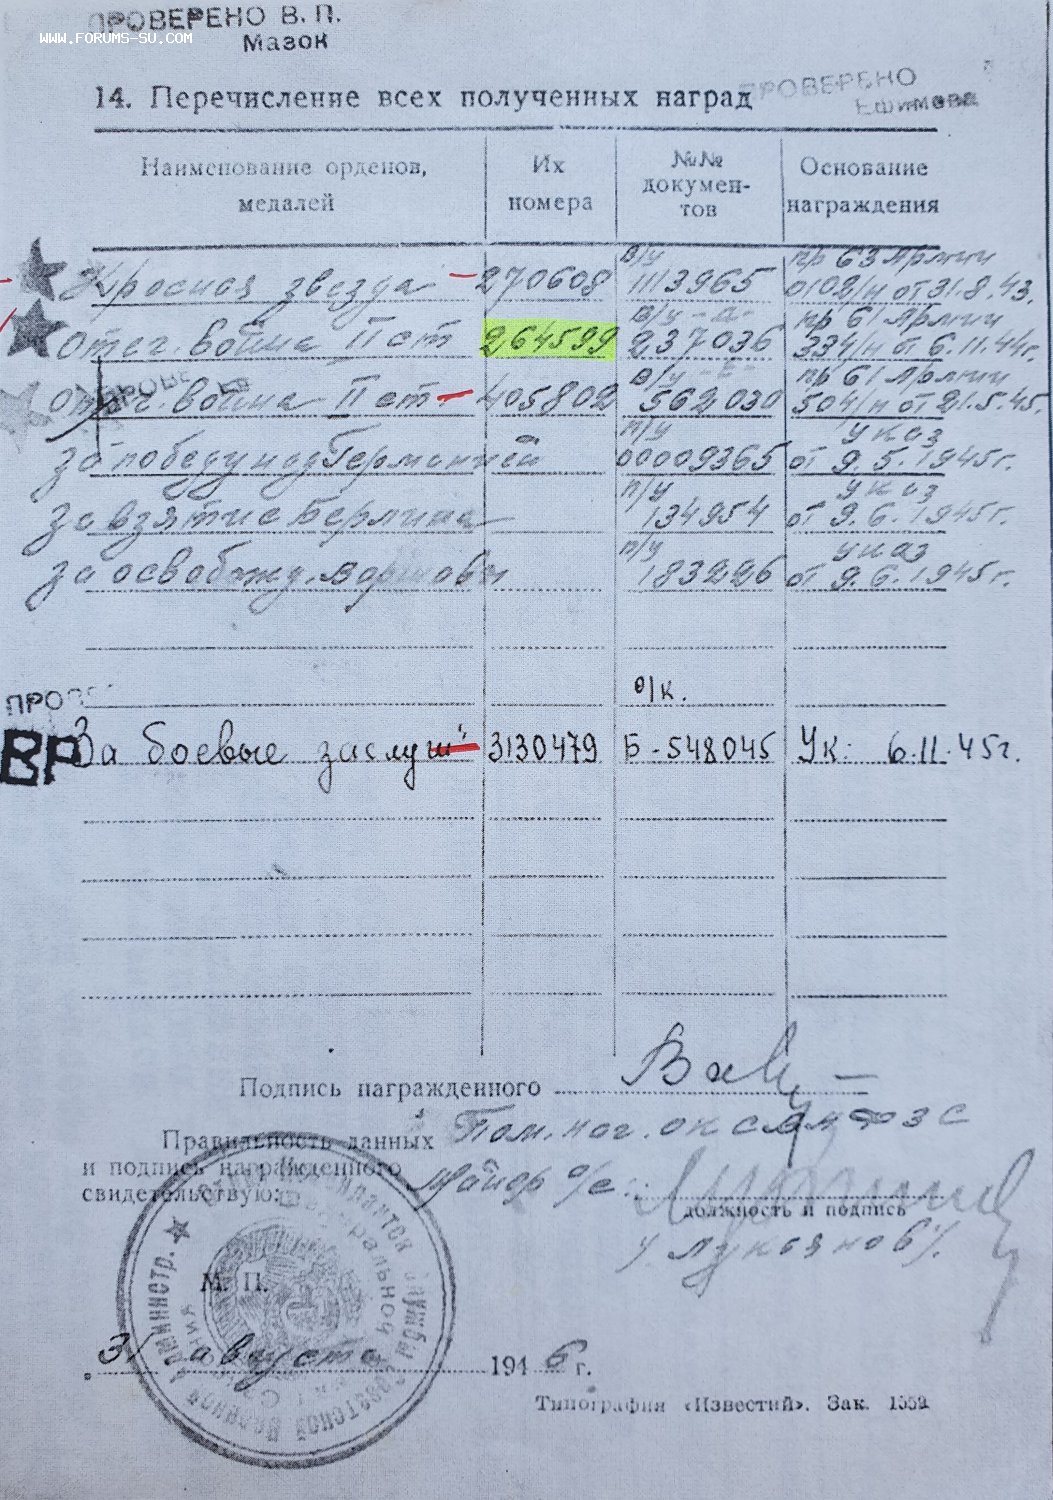 ПРОВЕРЕНО В. П.
Мазок
WWW.FORUMS-SU.COM
ПРОВЕРЕНО
Ефимова
14. Перечисление всех полученных наград
Наименование орденов, медалей
Их номера
№№ докумен-тов
Основание награждения
Красная звезда 270608 в/у 1113965 пр 63 Армии 0102/н от 31.8.43.
Отеч. война II ст 264599 в/у 237036 пр 61 Армии 334/н от 6.11.44г.
Отеч. война II ст 405802 в/у 562030 пр 61 Армии 504/н от 21.5.45г.
За победу над Германией п/у 00009365 Указ от 9.5.1945г.
За взятие Берлина п/у 134954 указ от 9.6.1945г.
За освобожд. Варшавы п/у 183226 указ от 9.6.1945г.
ПРО
ВР
За боевые заслуги 3130479 о/к. Б-548045 Ук. 6.11.45г.
Подпись награжденного
Пом. нач.
Правильность данных
и подпись награжденного
свидетельствую:
Майор а/с.
должность и подпись
/Лукьянов/.
М. П.
31 августа 1946 г.
Типография «Известий». Зак. 1552